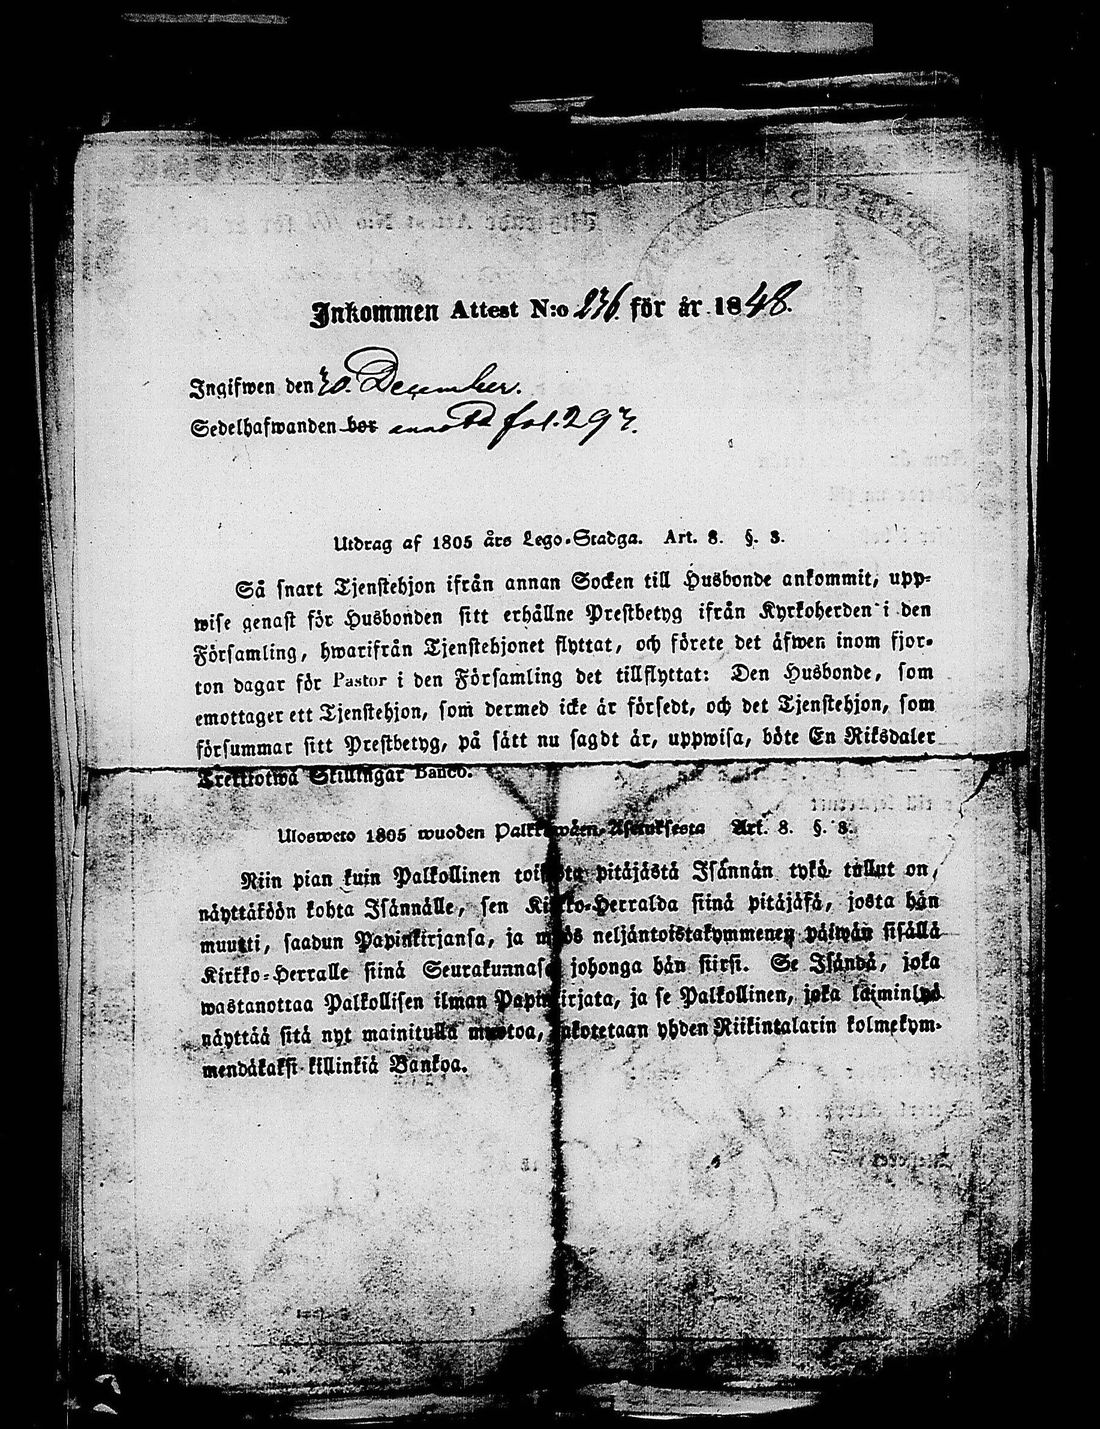 Inkommen Attest N:o 236 för år 1848.
Ingifwen den 30. December.
Sedelhafwanden bor fol. 297.
Utdrag af 1805 års Lego-Stadga. Art. 8. §. 3.
Så snart Tjenstehjon ifrån annan Socken till Husbonde ankommit, upp-
wise genast för Husbonden sitt erhållne Prestbetyg ifrån Kyrkoherden i den
Församling, hwarifrån Tjenstehjonet flyttat, och förete det äfwen inom fjor-
ton dagar för Pastor i den Församling det tillflyttat: Den Husbonde, som
emottager ett Tjenstehjon, som dermed icke är försedt, och det Tjenstehjon, som
försummar sitt Prestbetyg, på sätt nu sagdt är, uppwisa, böte En Riksdaler
Trettiotwå Skillingar Banco.
Ulosweto 1805 wuoden Palkkawäen-Asetuksesta Art. 8. §. 3.
Niin pian kuin Palkollinen toisesta pitäjästä Isännän tykö tullut on,
näyttäköön kohta Isännälle, sen Kirkko-Herralda siinä pitäjäsä, josta hän
muutti, saadun Papinkirjansa, ja myös neljäntoistakymmenen päiwän sisällä
Kirkko-Herralle siinä Seurakunnasa johonga hän siirsi. Se Isändä, joka
wastanottaa Palkollisen ilman Papinkirjata, ja se Palkollinen, joka laiminlyö
näyttää sitä nyt mainitulla muotoa, sakotetaan yhden Riikintalarin kolmekym-
mendäkaksi killinkiä Bankoa.